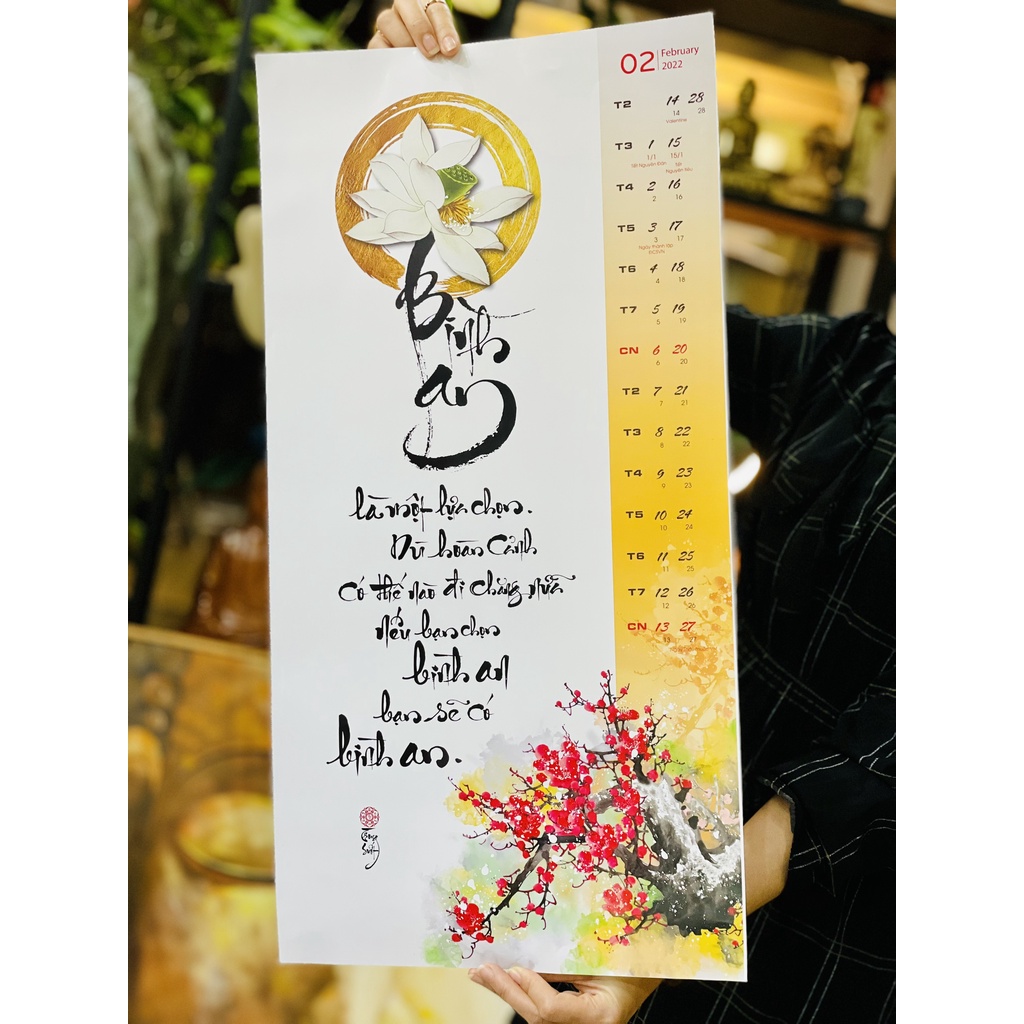 Bình
an
là một lựa chọn.
Dù hoàn cảnh
có thế nào đi chăng nữa
nếu bạn chọn
bình an
bạn sẽ có
bình an.
02 February
2022
T2 14 28
14 28
Valentine
T3 1 15
1/1 15/1
Tết Nguyên Đán Tết
Nguyên Tiêu
T4 2 16
2 16
T5 3 17
3 17
Ngày thành lập
ĐCSVN
T6 4 18
4 18
T7 5 19
5 19
CN 6 20
6 20
T2 7 21
7 21
T3 8 22
8 22
T4 9 23
9 23
T5 10 24
10 24
T6 11 25
11 25
T7 12 26
12 26
CN 13 27
13 27